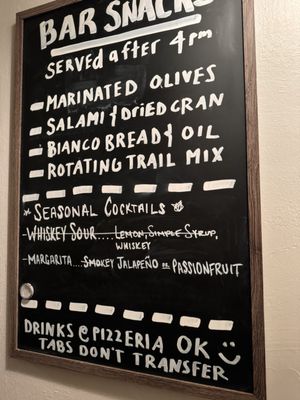 BAR SNACKS
SERVED after 4pm
- MARINATED OLIVES
- SALAMI & DRIED CRAN
- BIANCO BREAD & OIL
- ROTATING TRAIL MIX
* SEASONAL COCKTAILS *
- WHISKEY SOUR.... LEMON, SIMPLE SYRUP,
WHISKEY
- MARGARITA.... SMOKEY JALAPEÑO or PASSIONFRUIT
DRINKS @ PIZZERIA OK :)
TABS DON'T TRANSFER